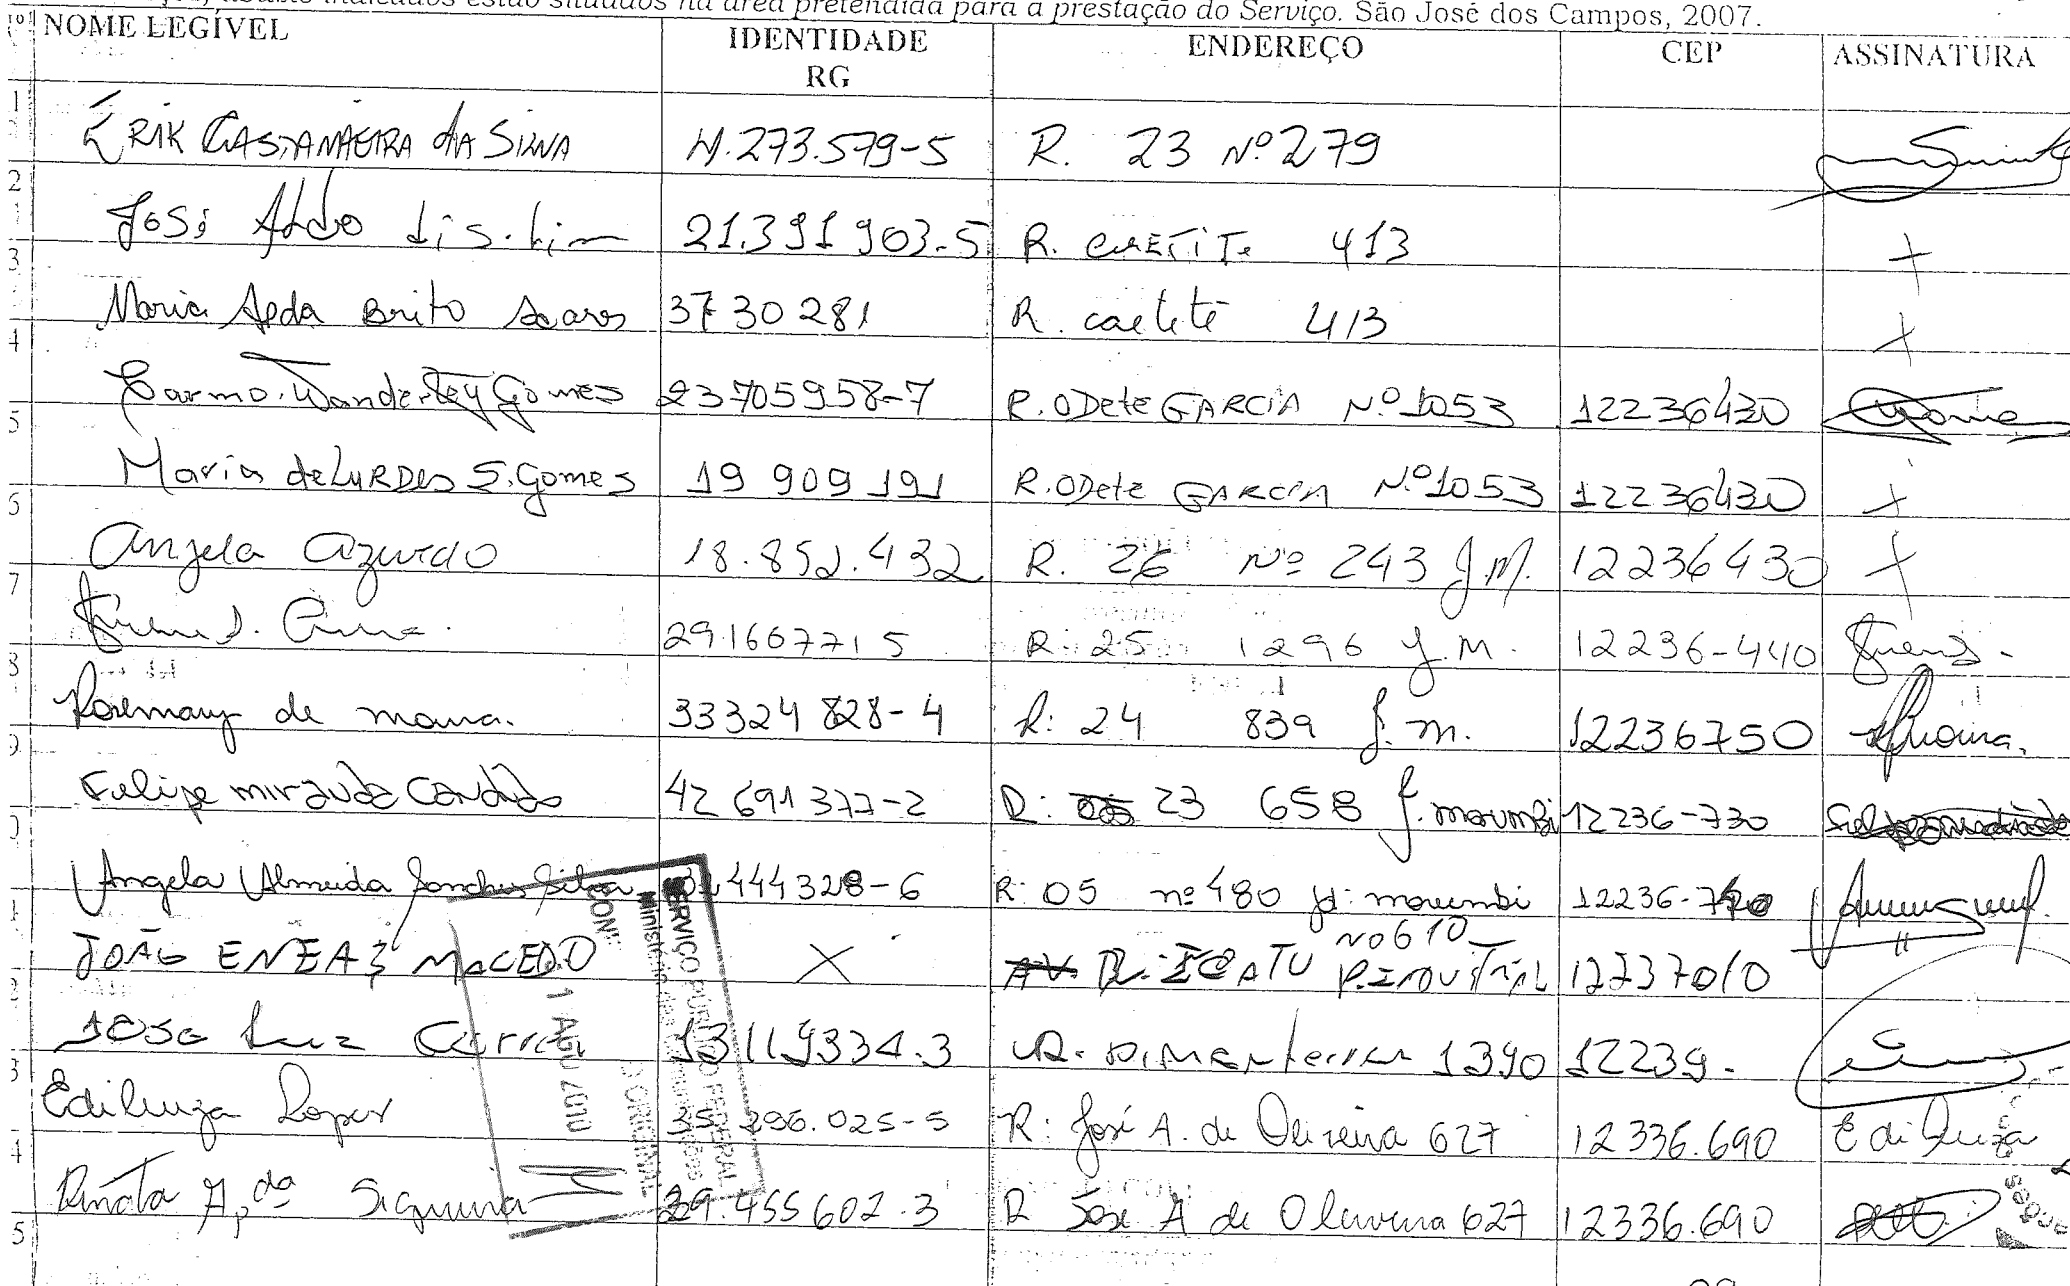 abaixo indicados estão situados na área pretendida para a prestação do Serviço. São José dos Campos, 2007.
NOME LEGÍVEL IDENTIDADE RG ENDEREÇO CEP ASSINATURA
1 ÉRIK CASTANHEIRA DA SILVA 273.579-5 R. 23 Nº 279
2 José Aldo 21.391903-5 R. 413 X
3 Maria Apda Brito Soares 3730281 R. caetité 413 X
4 Carmo. Wanderley Gomes 23705958-7 R. ODete GARCIA Nº 1053 12236430
5 Maria de LURDes S. Gomes 19 909 191 R. ODete GARCIA Nº 1053 12236430 X
6 Angela Azevedo 18.852.432 R. 26 Nº 243 J.M. 12236430 X
7 291667715 R: 25 1296 J.M. 12236-440
8 Rosemary de moura. 33324828-4 R: 24 839 J. m. 12236750
9 Felipe miranda Candido 42691377-2 R: 23 658 J. morumbi 12236-730
Angela Almeida Sanches Silva 444328-6 R: 05 nº 480 jd: morumbi 12236-
JOÃO ENEAS MACEDO X R. ICATU Nº 610 P. INDUSTRIAL 12237010
José Luz 13119334.3 R. 1390 12239-
Edileuza Lopes 35 296.025-5 R: José A. de Oliveira 627 12336.690 Edileuza
Renata Ap.da Siqueira 29.455602.3 R José A de Oliveira 627 12336.690
SERVIÇO PÚBLICO FEDERAL
Ministério das Comunicações
CONF. O ORIGINAL
1 AGO 2010